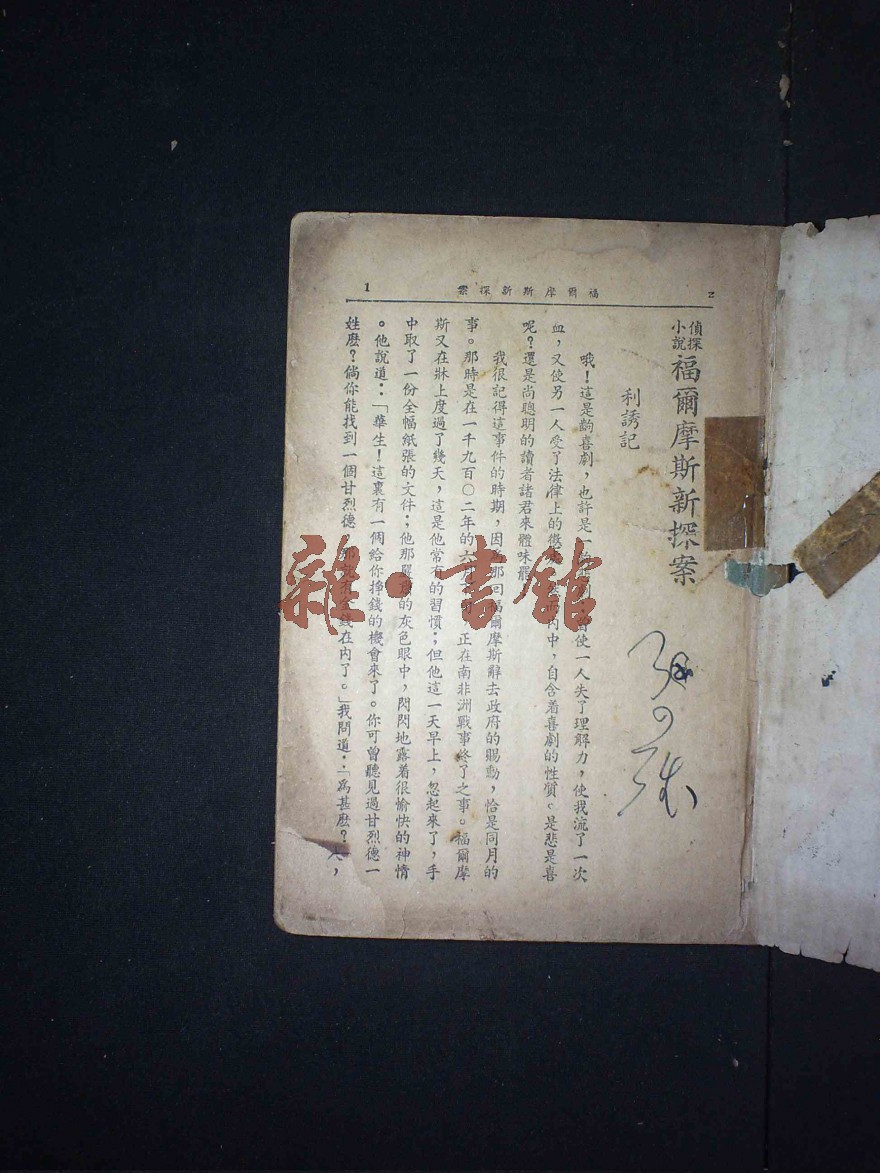 福爾摩斯新探案
1
偵探小說
福爾摩斯新探案
利誘記
哦！這是齣喜劇，也許是一使一人失了理解力，使我流了一次
血，又使另一人受了法律上的懲內中，自含着喜劇的性質。是悲是喜
呢？還是尚聰明的讀者諸君來體味罷
我很記得這事件的時期，因爲那回福爾摩斯辭去政府的賜動，恰是同月的
事。那時是在一千九百〇二年的六月正在南非洲戰事終了之事。福爾摩
斯又在牀上度過了幾天，這是他常有的習慣；但他這一天早上，忽起來了，手
中取了一份全幅紙張的文件；他那的灰色眼中，閃閃地露着很愉快的神情
。他說道：「華生！這裏有一個給你掙錢的機會來了。你可曾聽見過甘烈德一
姓麽？倘你能找到一個甘烈德錢在內了。」我問道：「爲甚麽？
雜·書館